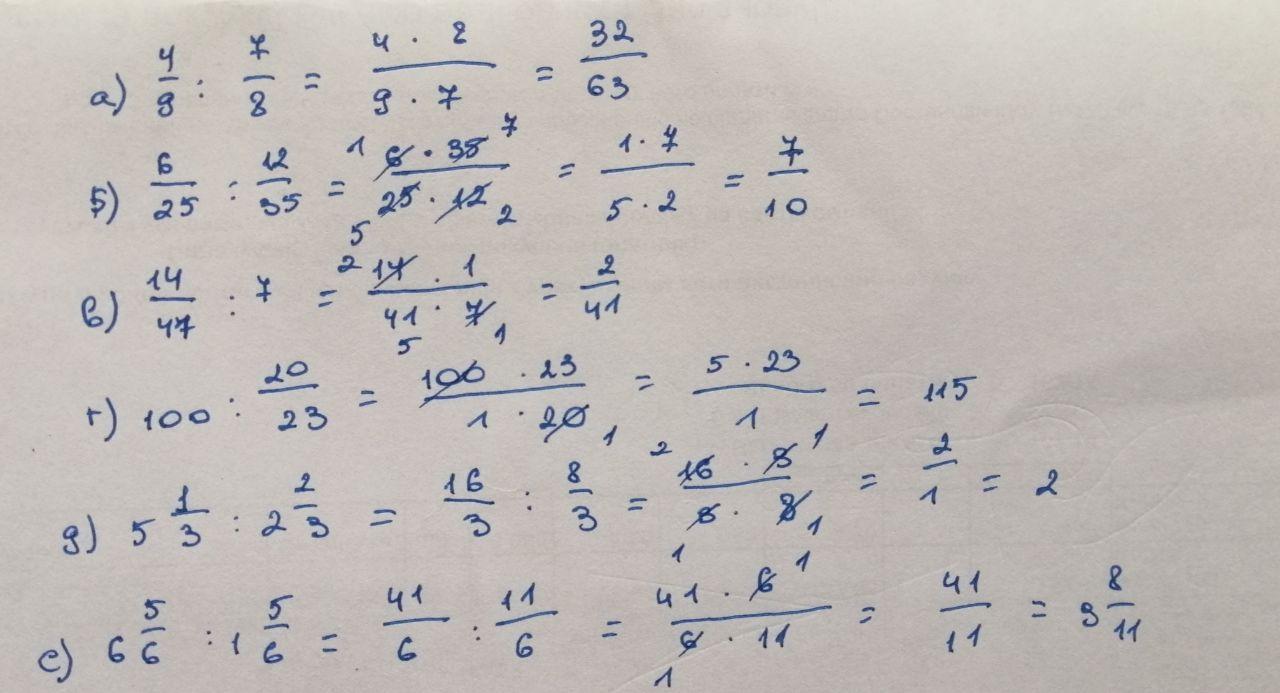 а) 4/9 : 7/8 = 4 · 8 / 9 · 7 = 32/63
б) 6/25 : 12/35 = 1 6 · 35 7 / 5 25 · 12 2 = 1 · 7 / 5 · 2 = 7/10
в) 14/47 : 7 = 2 14 · 1 / 41 · 7 1 = 2/41
г) 100 : 20/23 = 5 100 · 23 / 1 · 20 1 = 5 · 23 / 1 = 115
д) 5 1/3 : 2 2/3 = 16/3 : 8/3 = 2 16 · 3 1 / 1 3 · 8 1 = 2/1 = 2
е) 6 5/6 : 1 5/6 = 41/6 : 11/6 = 41 · 6 1 / 1 6 · 11 = 41/11 = 3 8/11